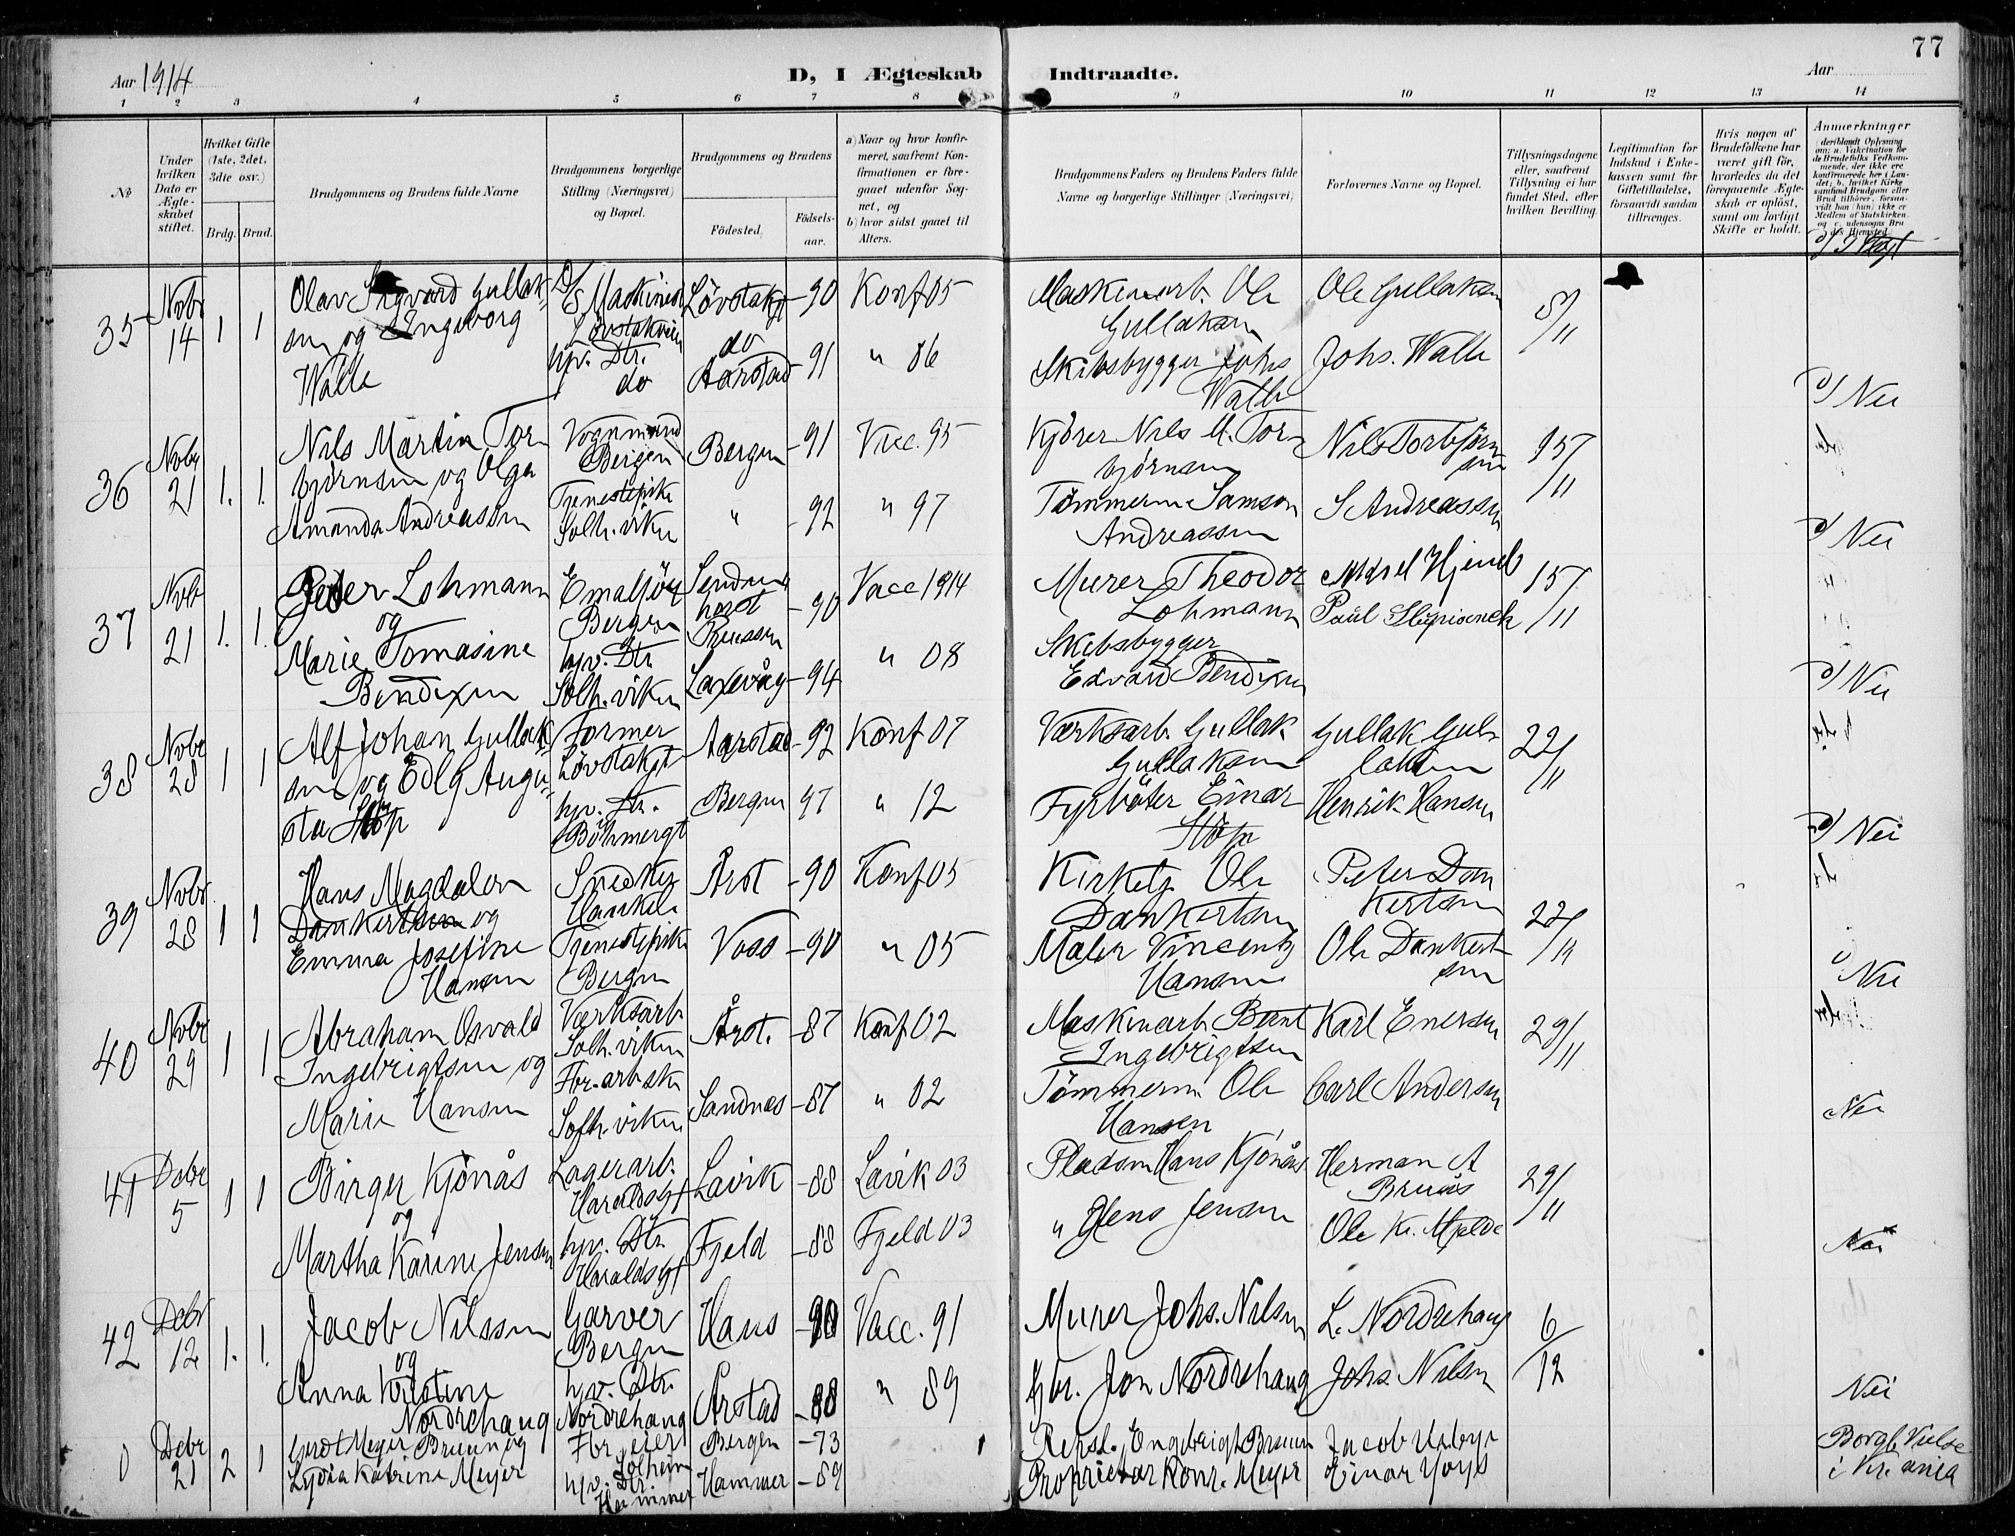 77
Aar 1914
D, I Ægteskab Indtraadte.
Aar
1 2 3 4 5 6 7 8 9 10 11 12 13 14
No
Under hvilken Dato er Ægteskabet stiftet.
Hvilket Gifte (1ste, 2det, 3die osv.)
Brdg. Brud.
Brudgommens og Brudens fulde Navne
Brudgommens borgerlige Stilling (Næringsvei) og Bopæl.
Brudgommens og Brudens
Födested.
Födselsaar.
a) Naar og hvor konfirmeret, saafremt Konfirmationen er foregaaet udenfor Sognet, og
b) hvor sidst gaaet til Alters.
Brudgommens Faders og Brudens Faders fulde Navne og borgerlige Stillinger (Næringsvei)
Forlovernes Navne og Bopæl.
Tillysningsdagene eller, saafremt Tillysning ei har fundet Sted, efter hvilken Bevilling.
Legitimation for Indskud i Enkekassen samt for Giftetilladelse, forsaavidt saadan tiltrænges.
Hvis nogen af Brudefolkene har været gift för, hvorledes da det foregaaende Ægteskab er oplöst, samt om lovligt Skifte er holdt.
Anmerkninger
35 Novbr 14 1 1
Olav Sigvard Gullaksen og Ingeborg Walle
Maskinist Løvstakveien
hjv. Dtr. do
Løvstakgt -90 Konf 05
do Aarstad -91 " 06
Maskinarb. Ole Gullaksen
Skibsbygger Johs Walle
Ole Gullaksen
Johs. Walle
8/11
Nei
36 Novbr 21 1. 1.
Nils Martin Torbjørnsen og Olga Amanda Andreassen
Vognmand Bergen
Tjenestepike Solh.viken
Bergen -91 Vacc. 95
" -92 " 97
Kjører Nils M. Torbjørnsen
Tømmerm Samson Andreassen
Nils Torbjørnsen
S Andreassen
15/11
Nei
37 Novbr 21 1. 1.
Peter Lohmann og Marie Tomasine Bendixen
Emaljör Bergen
hjv. Dtr Solh.viken
Sendenhorst Preussen -90 Vacc 1914
Laxevåg -94 " 08
Murer Theodor Lohmann
Skibsbygger Edvard Bendixen
Paul
15/11
Nei
38 Novbr 28 1 1
Alf Johan Gullaksen og Augusta Støp
Former Løvstakgt
hjv. Dtr. Böhmergt
Aarstad -92 Konf 07
Bergen 97 " 12
Værksarb. Gullak Gullaksen
Fyrbøter Einar Støp
Gullak Gullaksen
Henrik Hansen
22/11
Nei
39 Novbr. 28 1 1
Hans Magdalon Dankertsen og Emma Josefine Hansen
Snedker
Tjenestepike Bergen
Årst -90 Konf 05
Voss -90 " 05
Kirketj. Ole Dankertsen
Maler Vincentz Hansen
Peter Dankertsen
Ole Dankertsen
22/11
Nei
40 Novbr 29 1 1
Abraham Osvald Ingebrigtsen og Marie Hansen
Værksarb. Solh.viken
Fbr.arbske Solh.viken
Årst. -87 Konf 02
Sandnes -87 " 02
Maskinarb. Bernt Ingebrigtsen
Tömmerm. Ole Hansen
Karl Enersen
Carl Andersen
29/11
Nei
41 Decbr 5 1 1
Birger Kjönås og Martha Karine Jensen
Lagerarb. Haraldsgt
hjv. Dtr. Haraldsgt
Lavik -88 Lavik 03
Fjeld -88 Fjeld 03
Pladsm Hans Kjönås
" Jens Jensen
Herman A Bruås
Ole K. Mjelde
29/11
Nei
42 Decbr 12 1. 1.
Jacob Nilssen og Anna Kristine Nordrehaug
Garver Bergen
hjv. Dtr. Nordrehaug
Haus -90 Vacc. 91
Årstad -88 " 89
Murer Johs. Nilsen
Gbr. Jon Nordrehaug
L. Nordrehaug
Johs. Nilsen
6/12
Nei
0 Decbr 21 2 1
Gerdt Meyer Bruun og Lydia Katrine Meyer
Fbr.eier Solheim
hjv. Dtr. Hammer
Bergen -73
Hammer -89
Engebrigt Bruun
Proprietær Konr. Meyer
Jacob
Einar
Borgl. Vielse i Kr.ania